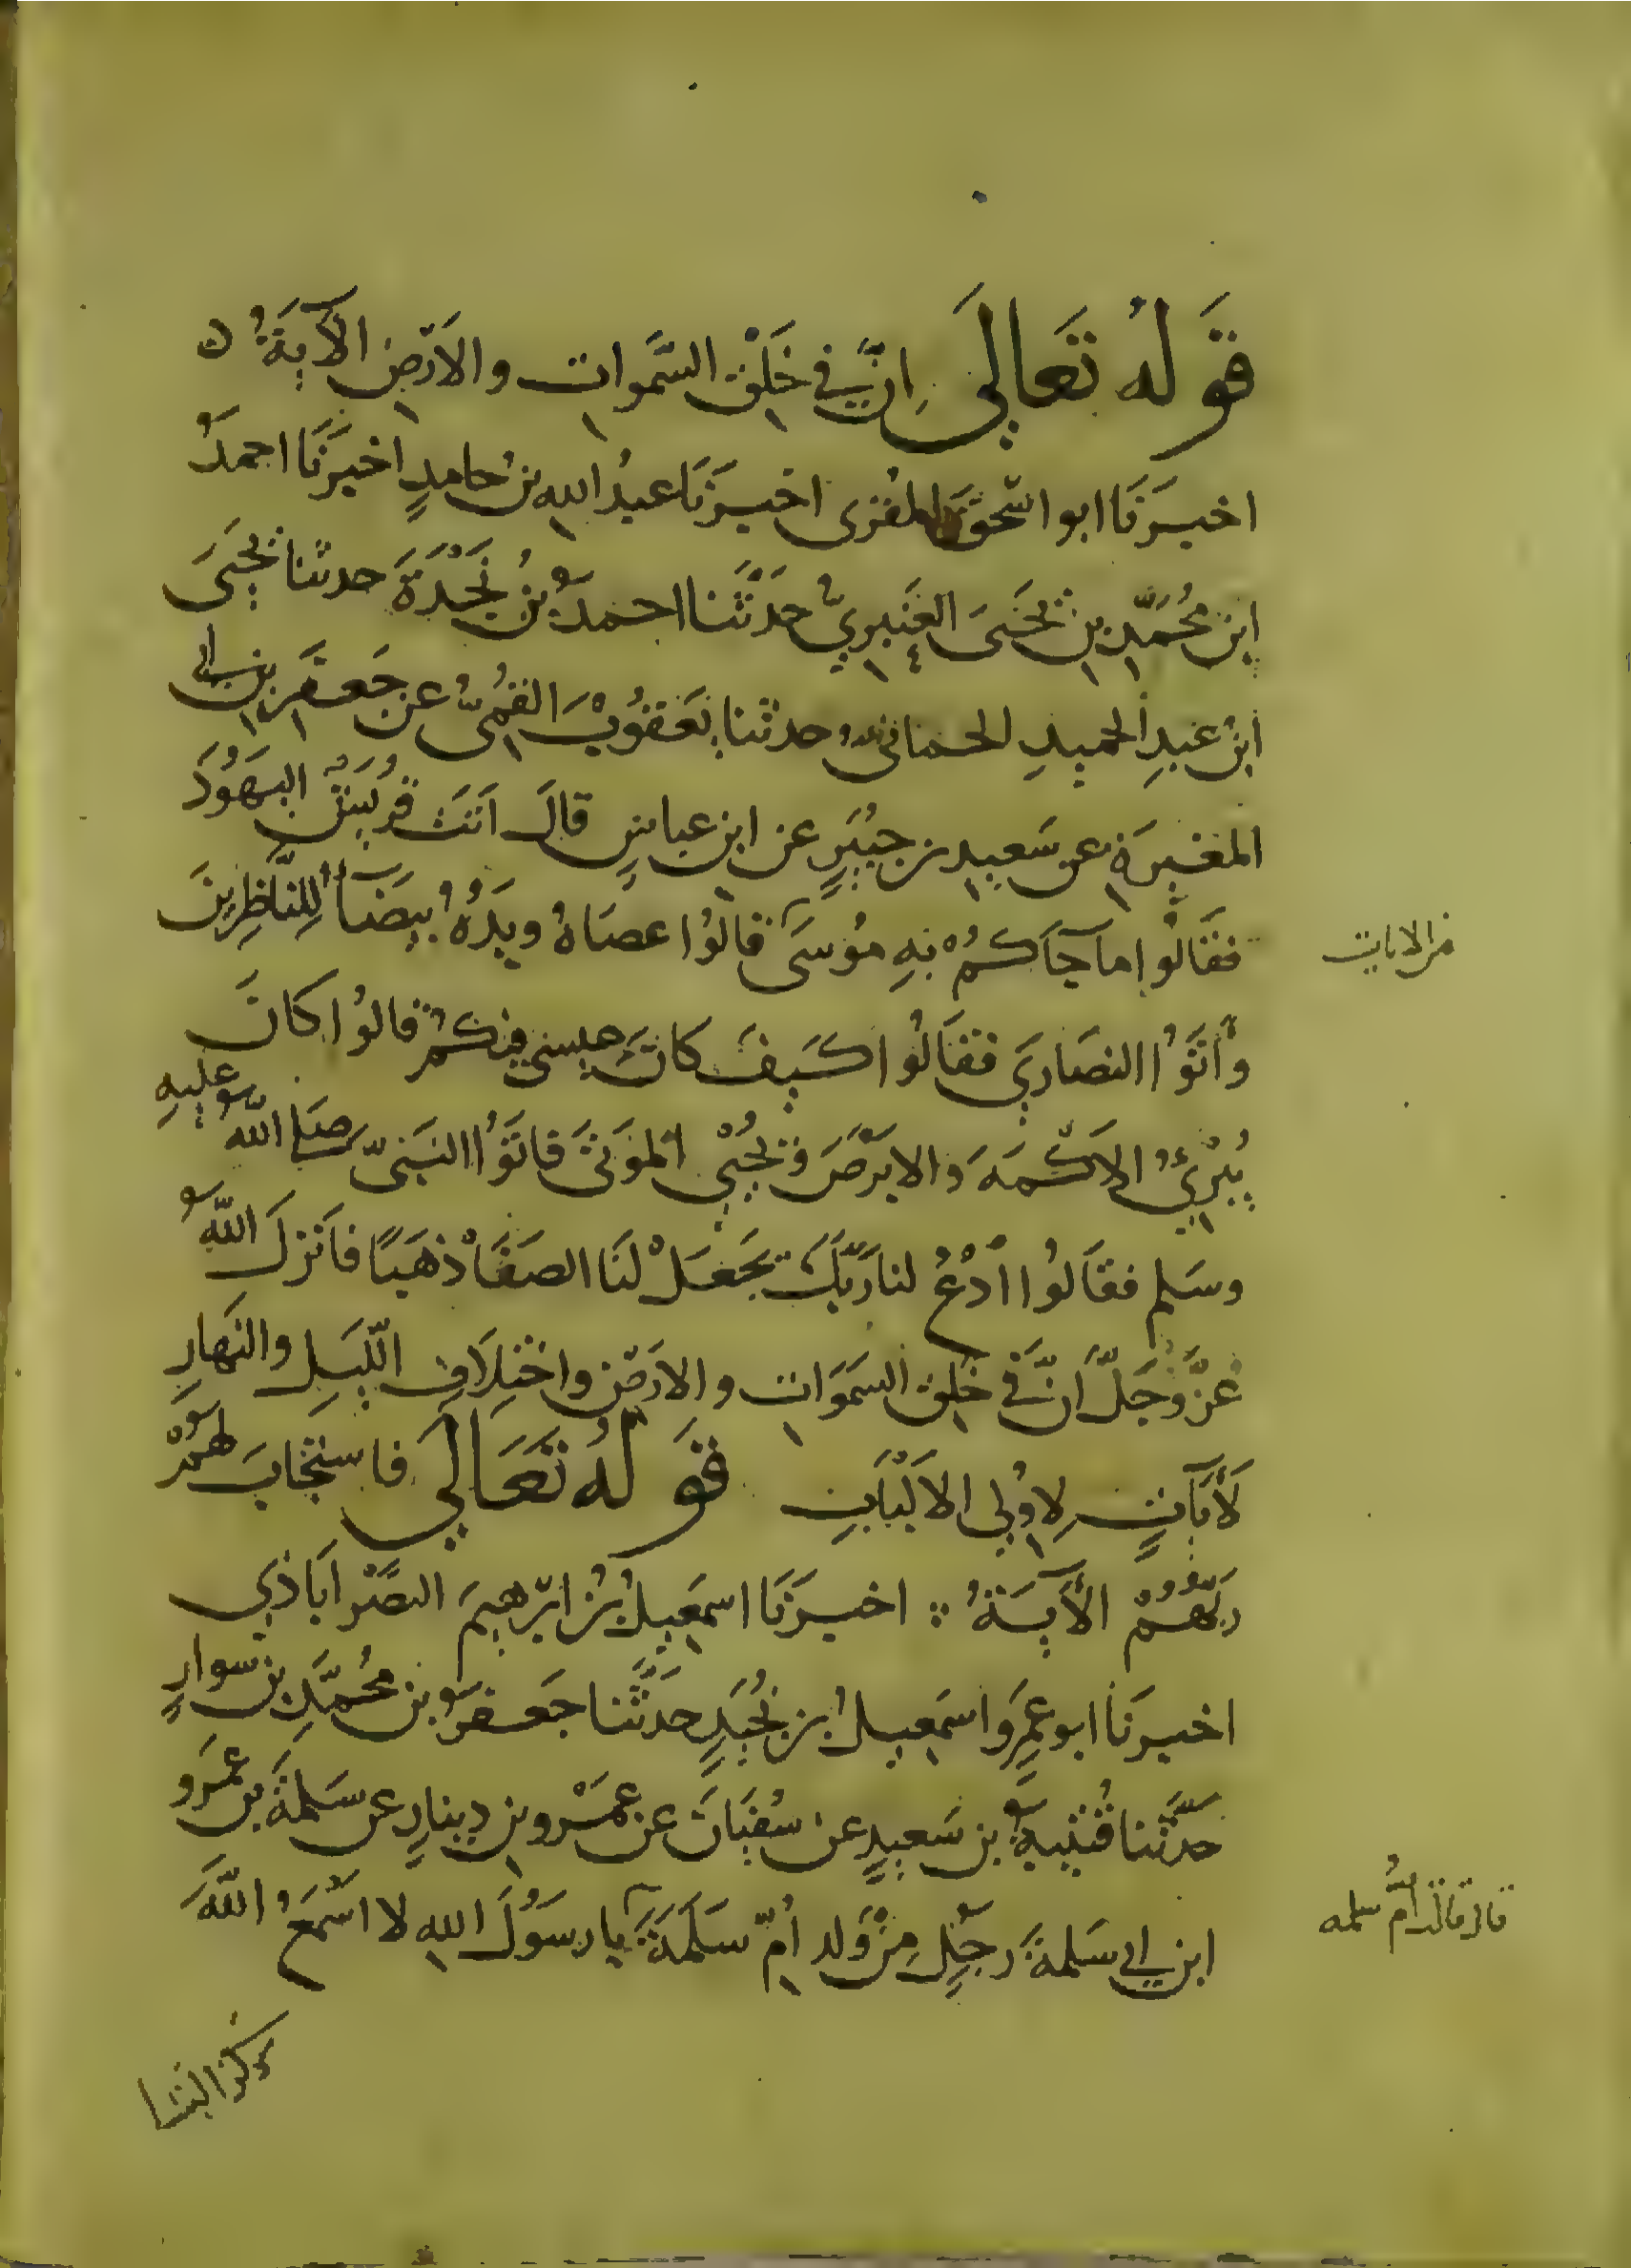 قَولهُ تَعَالَى اِنَّ فِي خَلْقِ السَّمَوات والاَرْضِ الآيَةُ
اخبرَنَا ابو اسْحٰقَ المقرى اخبرَنَا عبدُ اللهِ بنُ حامدٍ اخبرَنَا احمدُ
ابن مُحَمَّدِ بنِ يَحْيَى العَنْبَرِيُّ حَدَّثَنا احمدُ بنُ نَجْدَةَ حدثنا يَحْيَى
ابنُ عبدِ الحميدِ الحمانىُّ حدثنا يَعْقُوبُ القُمِّىُّ عن جَعْفَرِ بنِ ابى
المغيرةِ عن سَعيدِ بن جُبَيرٍ عن ابن عباسٍ قالَ اَتَتْ قُرَيْشٌ اليَهُودَ
فَقَالُوا ما جآكُمْ بهِ مُوسَى قالُوا عصَاهُ ويَدَهُ بَيضَآءُ لِلنَّاظِرِينَ
من الايات
وَأَتَوُا النصَارَي فقَالُوا كَيفَ كانَ عيسى فِيكُم قالُوا كانَ
يُبْرِئُ الاَكْمَهَ والابرَصَ ويُحْيِي المَوتَى فاتَوُا النبىَّ صَلى اللهُ عليهِ
وسَلم فقَالُوا اُدْعُ لنا رَبَّكَ يَجعَلْ لَنَا الصَفَا ذهَبًا فاَنزلَ اللهُ
عَزَّ وجَلَّ اِنَّ فِي خَلقِ السَمَوَات والاَرْضِ واختِلَافِ اللَّيلِ والنَهارِ
لَأيَاتٍ لِاُولِي الاَلْبَابِ قَولهُ تَعَالَي فاستجَابَ لهُمْ
رَبُّهُمْ الآيَةُ اخبرَنَا اسمَعيلُ بنُ ابرَهيمَ النصْراَباذِي
اخبرَنَا ابو عَمرٍو اسمَعيلُ بن نُجَيدٍ حَدَّثَنا جَعفرُ بن مُحمّدِ بن سوارٍ
حَدَّثنا قُتَيبةُ بن سَعيدٍ عن سُفيَانَ عن عَمْرو بنِ دِينارٍ عن سَلمةَ بن عَمرو
ابن ابى سَلمةَ رجُلٍ مِنْ وَلد اُمِّ سَلَمَةَ يا رسُولَ اللهِ لا اَسْمَعُ اللهَ
قال قالت امُّ سلمه
ذكرَ النسا